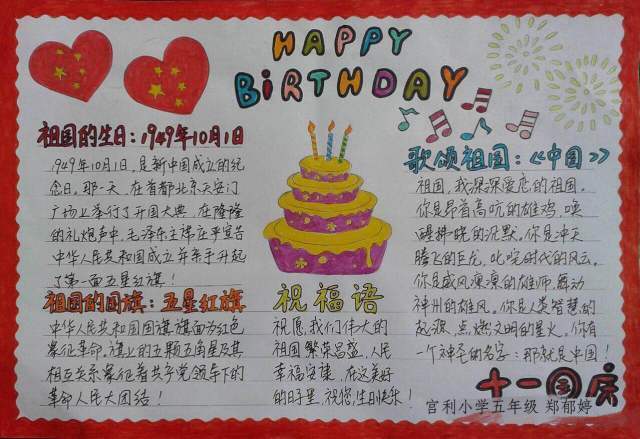 HAPPY
BiRTHDAY
祖国的生日：1949年10月1日
1949年10月1日,是新中国成立的纪
念日。那一天，在首都北京天安门
广场上举行了开国大典，在隆隆
的礼炮声中，毛泽东主席庄严宣告
中华人民共和国成立并亲手升起
了第一面五星红旗！
祖国的国旗：五星红旗
中华人民共和国国旗旗面为红色
象征革命，旗上的五颗五角星及其
相互关系象征着共产党领导下的
革命人民大团结！
祝福语
祝愿我们伟大的
祖国繁荣昌盛，人民
幸福安康，在这美好
的日子里，祝您生日快乐！
歌颂祖国：《中国》
祖国，我深深爱恋的祖国。
你是昂首高吭的雄鸡，唤
醒拂晓的沉默。你是冲天
腾飞的巨龙，叱咤时代的风云。
你是威风凛凛的雄师，舞动
神州的雄风。你是人类智慧的
起源，点燃文明的星火，你有
一个神圣的名字：那就是中国！
十一国庆
官利小学五年级 郑郁婷